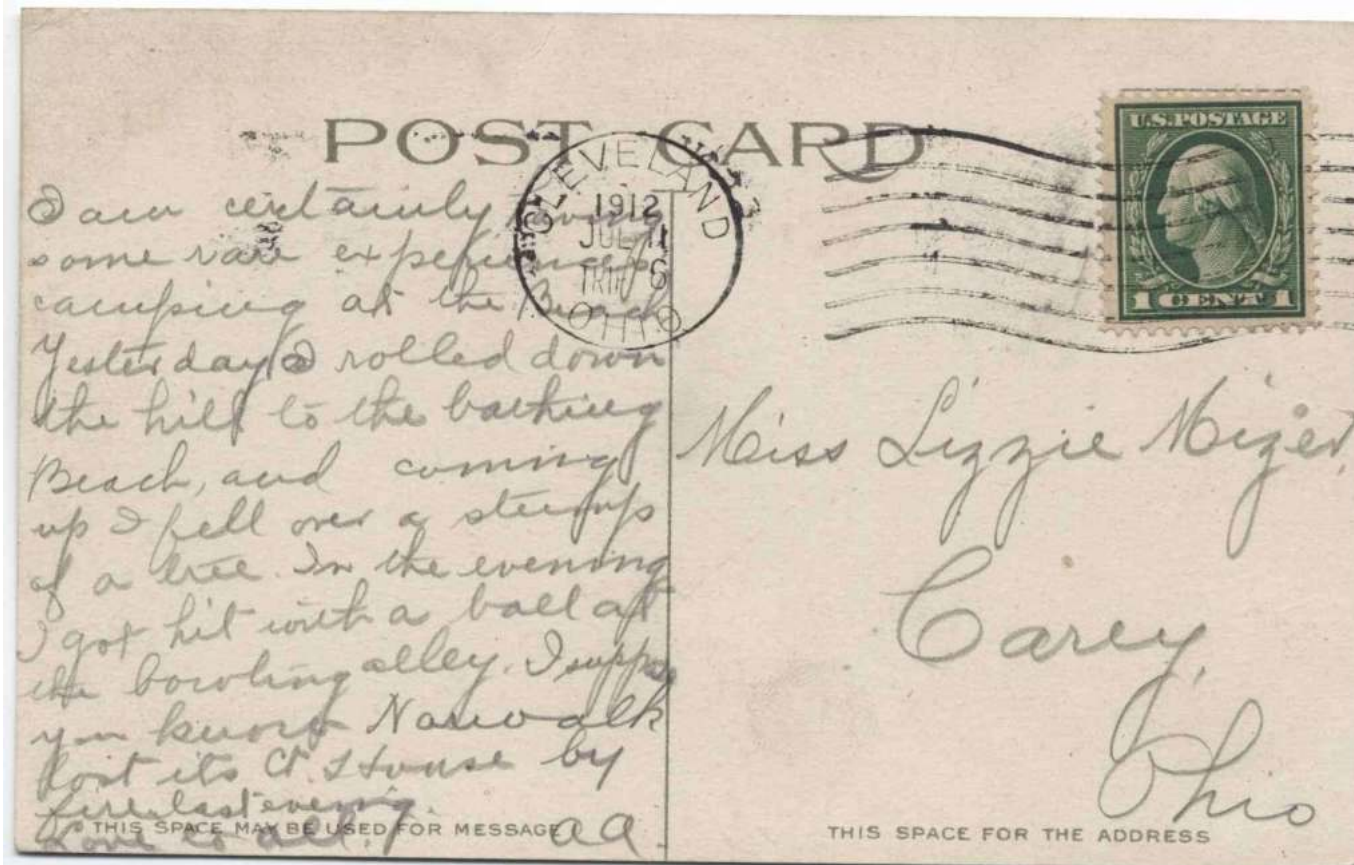 POST CARD
CLEVELAND
1912
JUL 11
6
OHIO
U.S. POSTAGE
1 CENT 1
I am certainly having
some rare experiences
camping at the Beach
Yesterday I rolled down
the hill to the bathing
Beach, and coming
up I fell over a stump
of a tree. In the evening
I got hit with a ball at
the bowling alley. I suppose
you know Norwalk
lost its Ct. House by
fire last evening.
Love to all.
aa.
THIS SPACE MAY BE USED FOR MESSAGE
Miss Lizzie Mizer,
Carey,
Ohio
THIS SPACE FOR THE ADDRESS